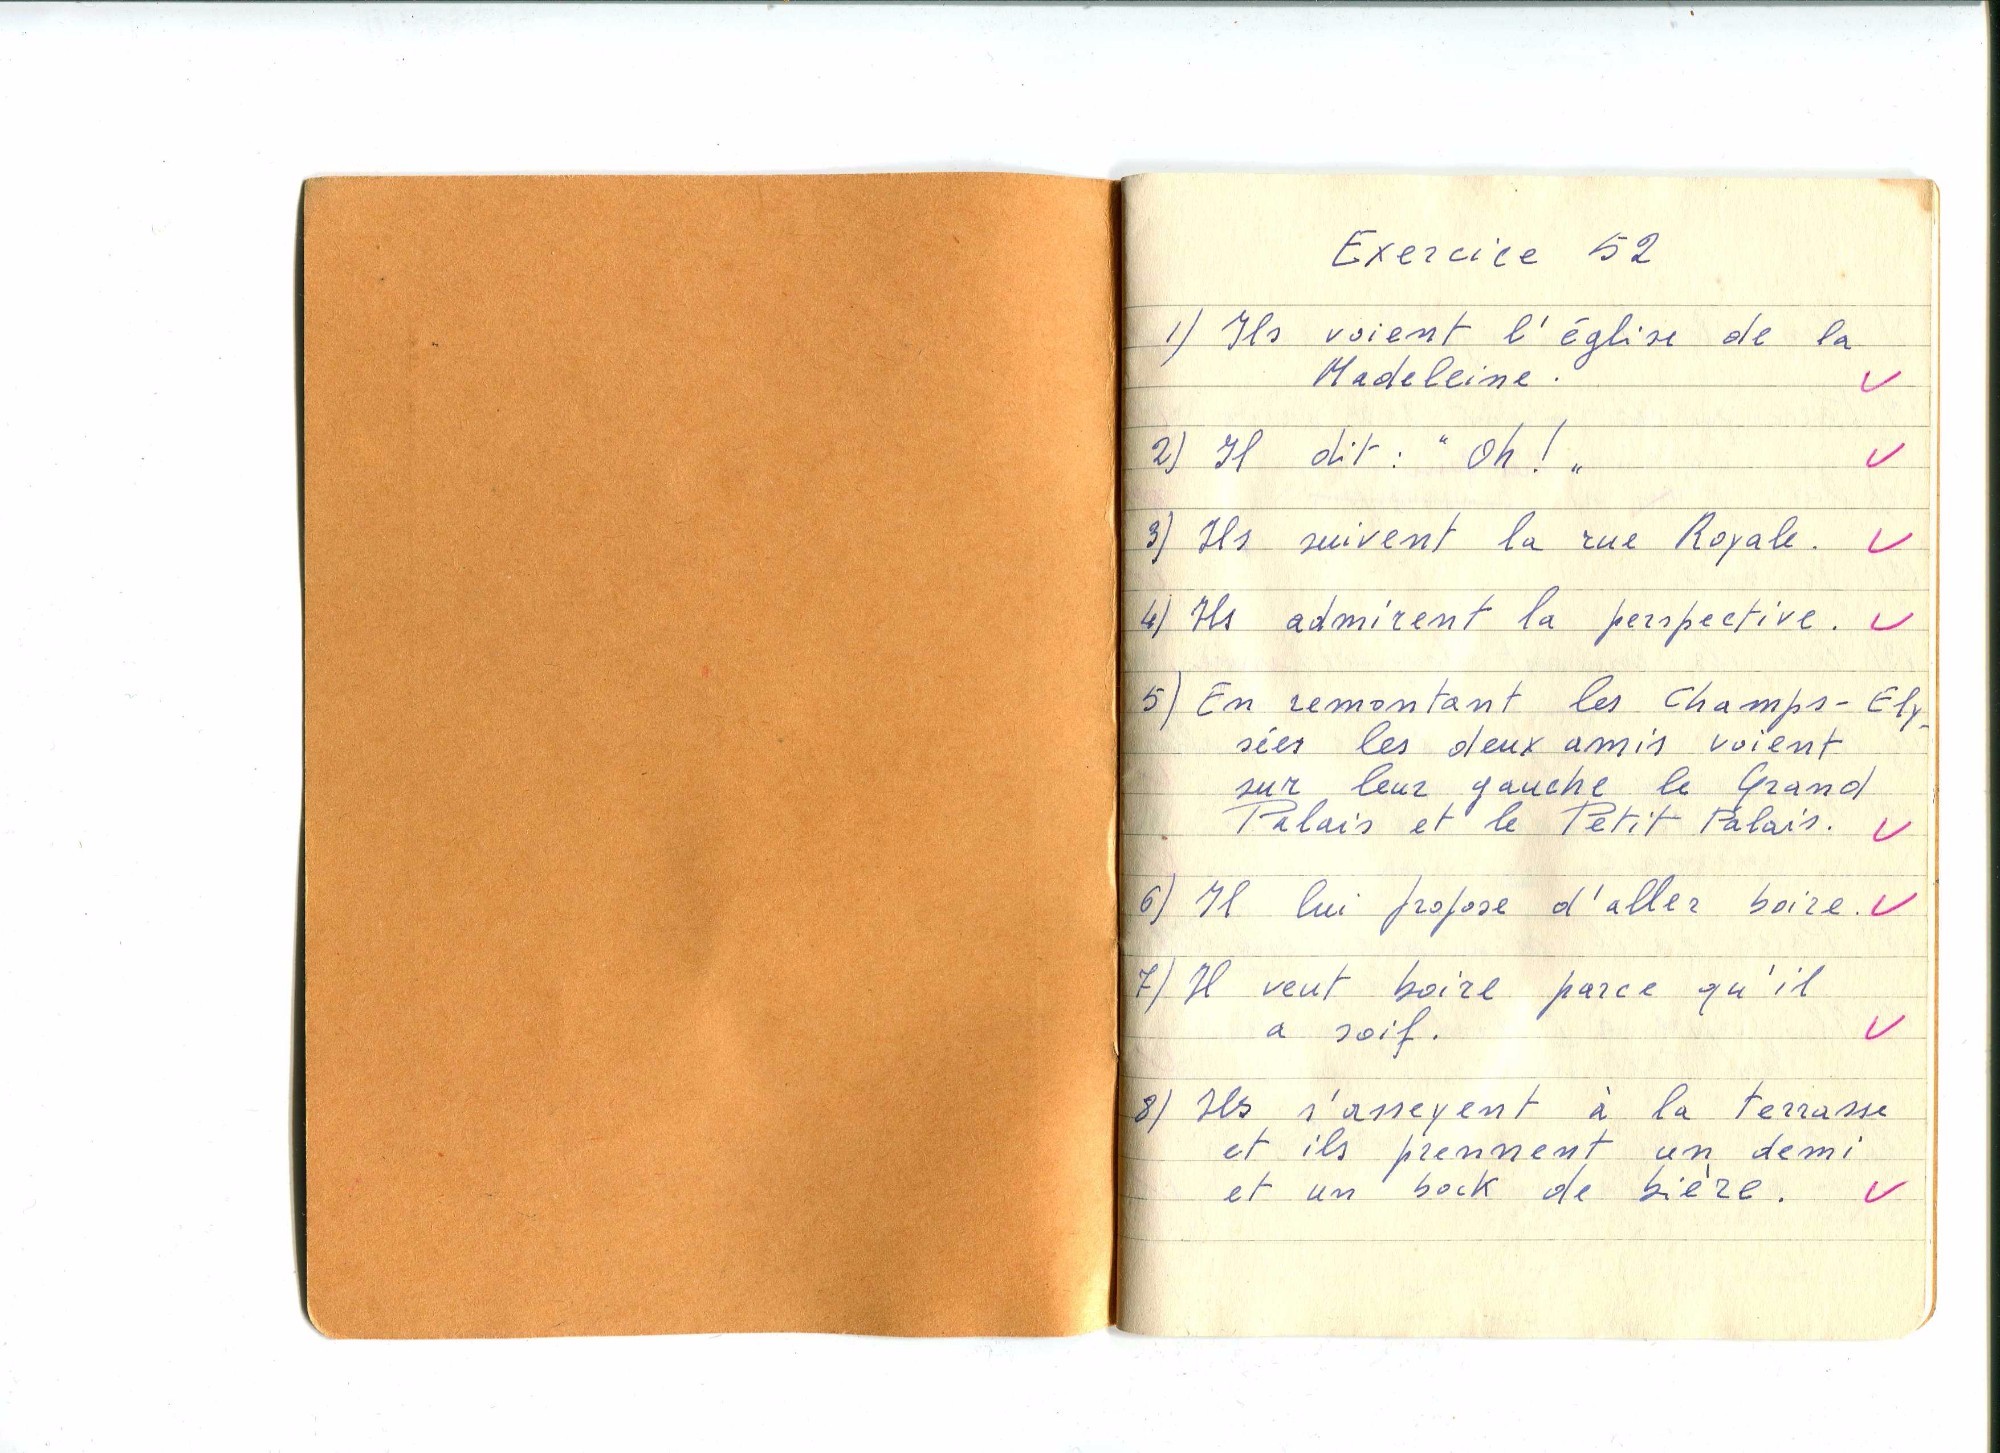 Exercice 52
1) Ils voient l'église de la
Madeleine.
2) Il dit: "Oh!„
3) Ils suivent la rue Royale.
4) Ils admirent la perspective.
5) En remontant les Champs-Ely-
sées les deux amis voient
sur leur gauche le Grand
Palais et le Petit Palais.
6) Il lui propose d'aller boire.
7) Il veut boire parce qu'il
a soif.
8) Ils s'asseyent à la terrasse
et ils prennent un demi
et un bock de bière.